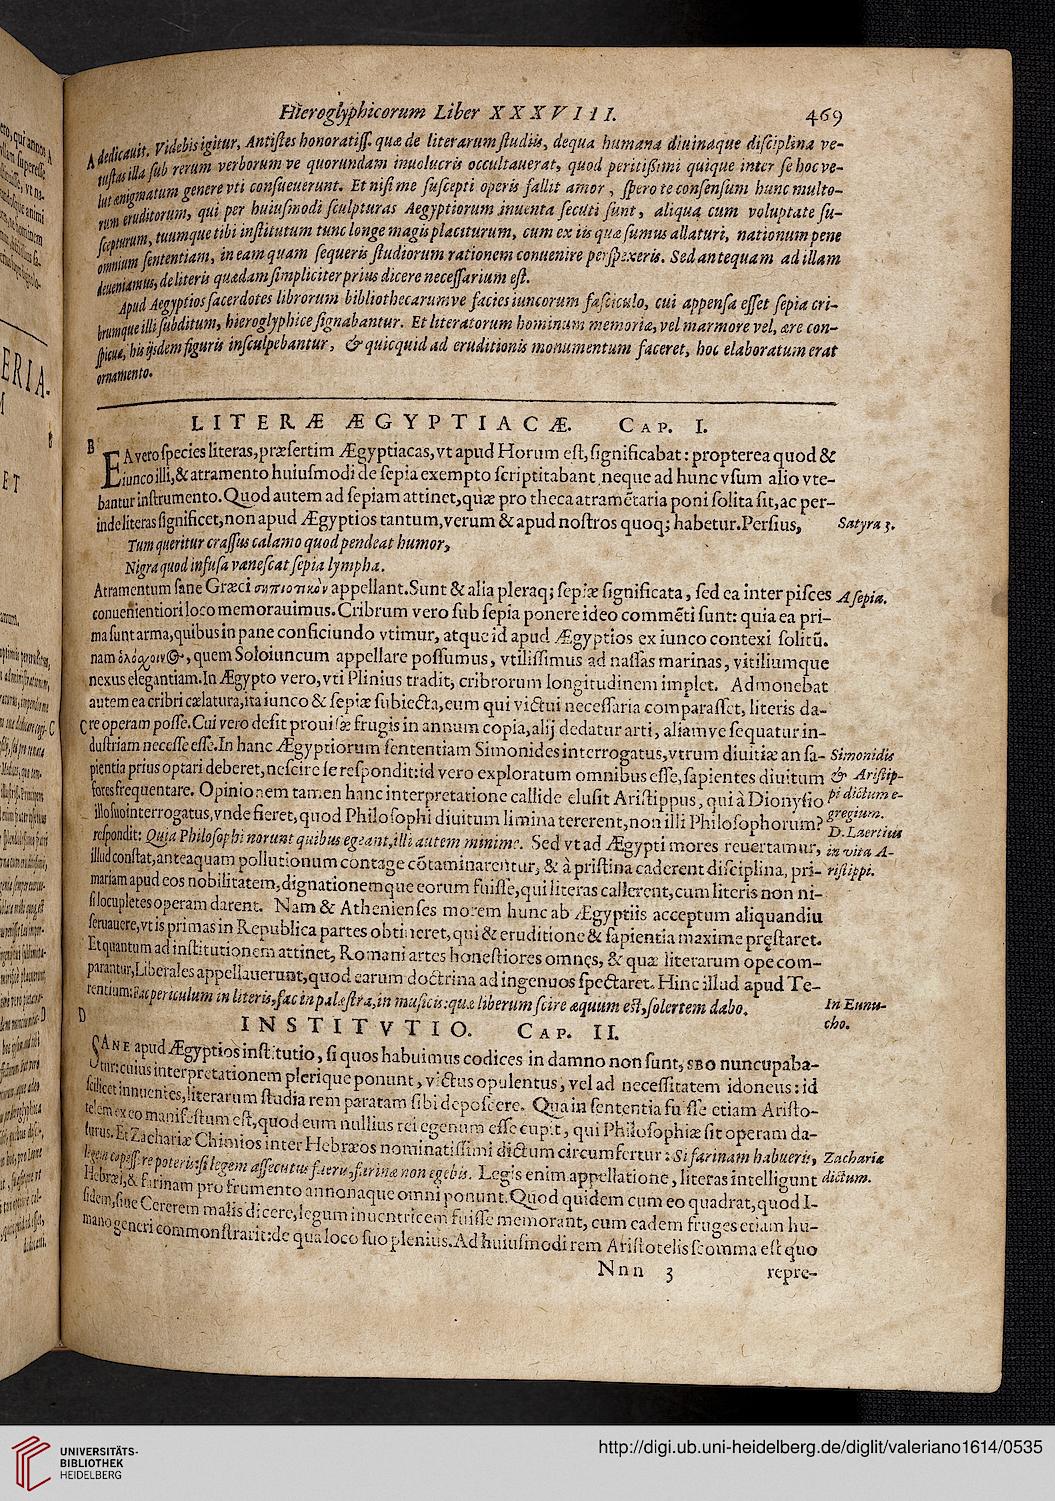 Hieroglyphicorum Liber XXXVIII. 469
A dedicauit. Videbis igitur, Antistes honoratiss. quæ de literarum studiis, deque humana diuinaque disciplina ve-
tustas illa sub rerum verborumve quorundam inuolucris occultauerat, quod peritißimi quique inter se hoc ve-
lut ænigmatum genere vti consueuerunt. Et nisi me suscepti operis fallit amor, spero te consensum hunc multo-
rum eruditorum, qui per huiusmodi sculpturas Aegyptiorum inuenta secuti sunt, aliqua cum voluptate su-
scepturum, tuumque tibi institutum tunc longe magis placiturum, cum ex iis quæ sumus allaturi, nationum pene
omnium sententiam, in eam quam sequeris studiorum rationem conuenire perspexeris. Sed antequam ad illam
deueniamus, de literis quædam simpliciter prius dicere necessarium est.
Apud Aegyptios sacerdotes librorum bibliothecarumve facies iuncorum fasciculo, cui appensa esset sepia cri-
brumque illi subditum, hieroglyphice signabantur. Et literatorum hominum memoriæ, vel marmore vel, ære con-
spicuæ, his ijsdem figuris insculpebantur, & quicquid ad eruditionis monumentum faceret, hoc elaboratum erat
ornamento.
LITERÆ ÆGYPTIACÆ. CAP. I.
B EA vero species literas, præsertim Ægyptiacas, vt apud Horum est, significabat: propterea quod &
iunco illi, & atramento huiusmodi de sepia exempto scriptitabant neque ad hunc vsum alio vte-
bantur instrumento. Quod autem ad sepiam attinet, quæ pro theca atramētaria poni solita sit, ac per-
inde literas significet, non apud Ægyptios tantum, verum & apud nostros quoq; habetur. Persius, Satyra 3.
Tum queritur crassus calamo quod pendeat humor,
Nigra quod infusa vanescat sepia lympha.
Atramentum sane Græci σηπιοτικὸν appellant. Sunt & alia pleraq; sepiæ significata, sed ea inter pisces A sepia.
conuenientiori loco memorauimus. Cribrum vero sub sepia ponere ideo commēti sunt: quia ea pri-
ma sunt arma, quibus in pane conficiundo vtimur, atque id apud Ægyptios ex iunco contexi solitū.
nam ὁλόχοινος, quem Soloiuncum appellare possumus, vtilissimus ad nassas marinas, vitiliumque
nexus elegantiam. In Ægypto vero, vti Plinius tradit, cribrorum longitudinem implet. Admonebat
autem ea cribri cælatura, ita iunco & sepiæ subiecta, eum qui victui necessaria comparasset, literis da-
C re operam posse. Cui vero desit prouisæ frugis in annum copia, alij dedatur arti, aliamve sequatur in-
dustriam necesse esse. In hanc Ægyptiorum sententiam Simonides interrogatus, vtrum diuitiæ an sa- Simonidis
pientia prius optari deberet, nescire se respondit: id vero exploratum omnibus esse, sapientes diuitum & Aristip-
fores frequentare. Opinionem tamen hanc interpretatione callide elusit Aristippus, qui à Dionysio pi dictum e-
illo suo interrogatus, vnde fieret, quod Philosophi diuitum limina tererent, non illi Philosophorum? gregium.
respondit: Quia Philosophi norunt quibus egeant, illi autem minime. Sed vt ad Ægypti mores reuertamur, D. Laertius in vita A-
illud constat, antea quam pollutionum contage cōtaminarentur, & à pristina caderent disciplina, pri- ristippi.
mariam apud eos nobilitatem, dignationemque eorum fuisse, qui literas callerent, cum literis non ni-
si locupletes operam darent. Nam & Athenienses morem hunc ab Ægyptiis acceptum aliquandiu
seruauere, vt is primas in Republica partes obtineret, qui & eruditione & sapientia maxime pręstaret.
Et quantum ad institutionem attinet, Romani artes honestiores omnęs, & quæ literarum ope com-
parantur, Liberales appellauerunt, quod earum doctrina ad ingenuos spectaret. Hinc illud apud Te-
rentium: Fac periculum in literis, fac in palæstra, in musicis: quæ liberum scire æquum est, solertem dabo. In Eunu-
cho.
D INSTITVTIO. CAP. II.
SANE apud Ægyptios institutio, si quos habuimus codices in damno non sunt, SBO nuncupaba-
tur: cuius interpretationem plerique ponunt, victus opulentus, vel ad necessitatem idoneus: id
scilicet innuentes, literarum studia rem paratam sibi deposcere. Qua in sententia fuisse etiam Aristo-
telem ex eo manifestum est, quod eum nullius rei egenum esse cupit, qui Philosophiæ sit operam da-
turus. Et Zachariæ Chimios inter Hebræos nominatissimi dictum circumfertur: Si farinam habueris, Zachariæ
legem capessere poteris: si legem assecutus fueris, farina non egebis. Legis enim appellatione, literas intelligunt dictum.
Hebræi, & farinam pro frumento annonaque omni ponunt. Quod quidem cum eo quadrat, quod I-
sidem, siue Cererem malis dicere, legum inuentricem fuisse memorant, cum eadem fruges etiam hu-
mano generi commonstrarit: de qua loco suo plenius. Ad huiusmodi rem Aristotelis scomma est quo
Nnn 3 repre-
UNIVERSITÄTS-
BIBLIOTHEK
HEIDELBERG
http://digi.ub.uni-heidelberg.de/diglit/valeriano1614/0535